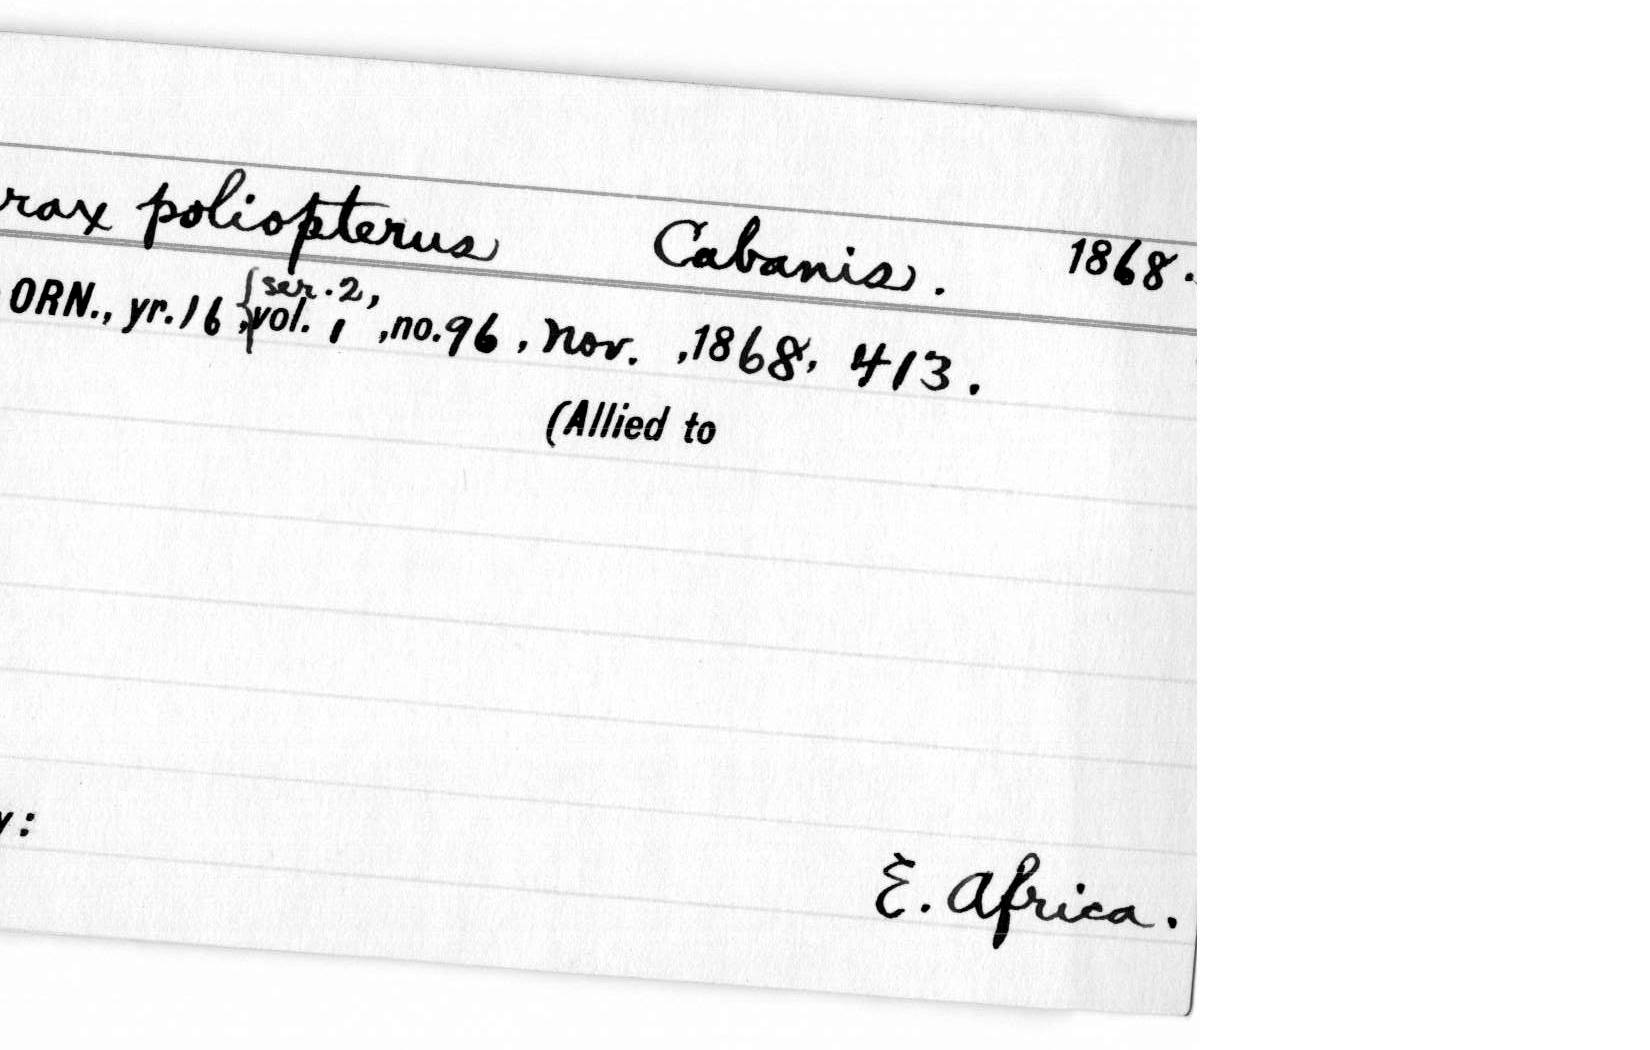 rax poliopterus Cabanis. 1868.
ORN., yr.16 {ser.2, ,vol. 1 ,no.96 , Nov. ,1868, 413.
(Allied to
y:
E. Africa.